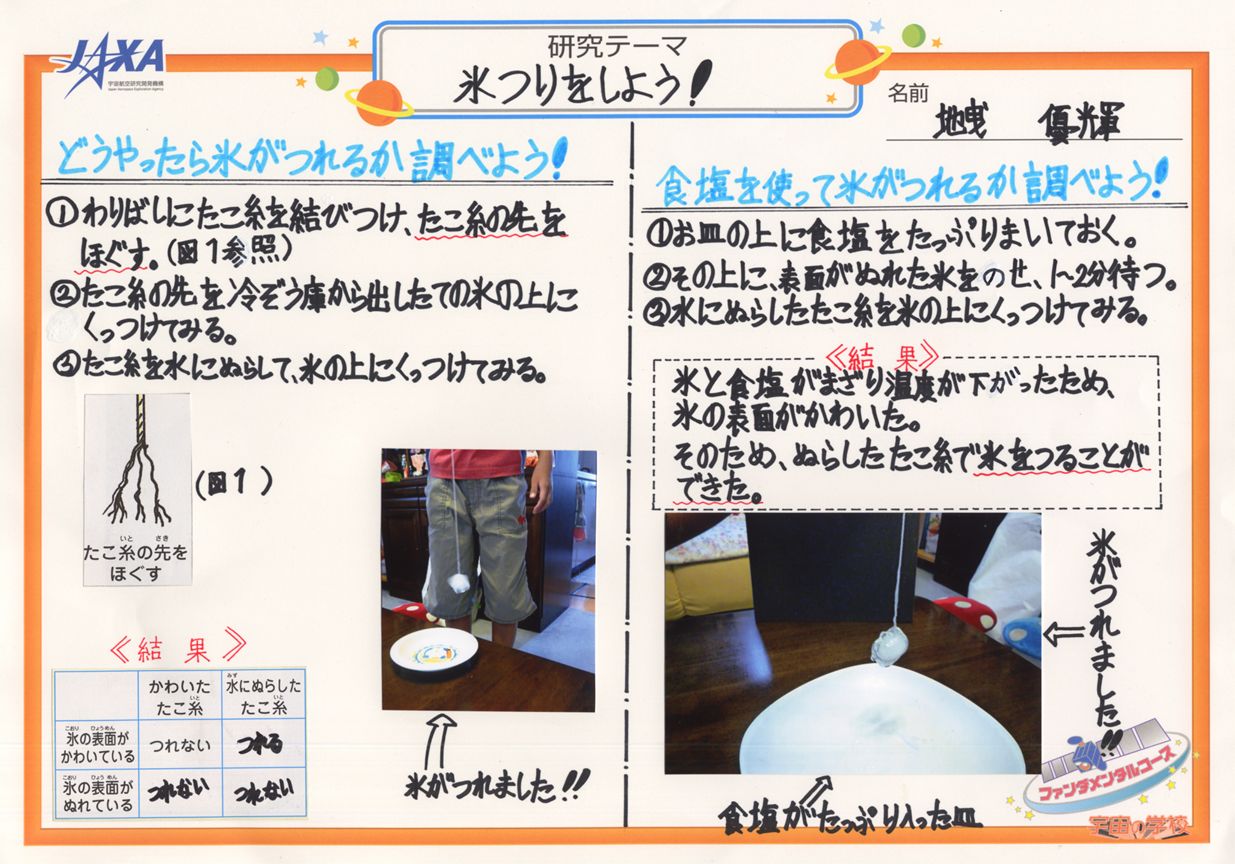 JAXA
宇宙航空研究開発機構
Japan Aerospace Exploration Agency
研究テーマ
氷つりをしよう!
名前
地曵 優輝
どうやったら氷がつれるか調べよう!
①わりばしにたこ糸を結びつけ、たこ糸の先を
ほぐす。(図1参照)
②たこ糸の先を冷ぞう庫から出したての氷の上に
くっつけてみる。
③たこ糸を水にぬらして、氷の上にくっつけてみる。
いと さき
たこ糸の先を
ほぐす
(図1)
氷がつれました!!
《結果》
かわいた
たこ糸
いと
みず
水にぬらした
たこ糸
いと
こおり ひょうめん
氷の表面が
かわいている
つれない
つれる
こおり ひょうめん
氷の表面が
ぬれている
つれない
つれない
食塩を使って氷がつれるか調べよう!
①お皿の上に食塩をたっぷりまいておく。
②その上に、表面がぬれた氷をのせ、1~2分待つ。
③水にぬらしたたこ糸を氷の上にくっつけてみる。
《結果》
氷と食塩がまざり温度が下がったため、
氷の表面がかわいた。
そのため、ぬらしたたこ糸で氷をつることが
できた。
氷がつれました!!
食塩がたっぷり入った皿
ファンダメンタルコース
宇宙の学校